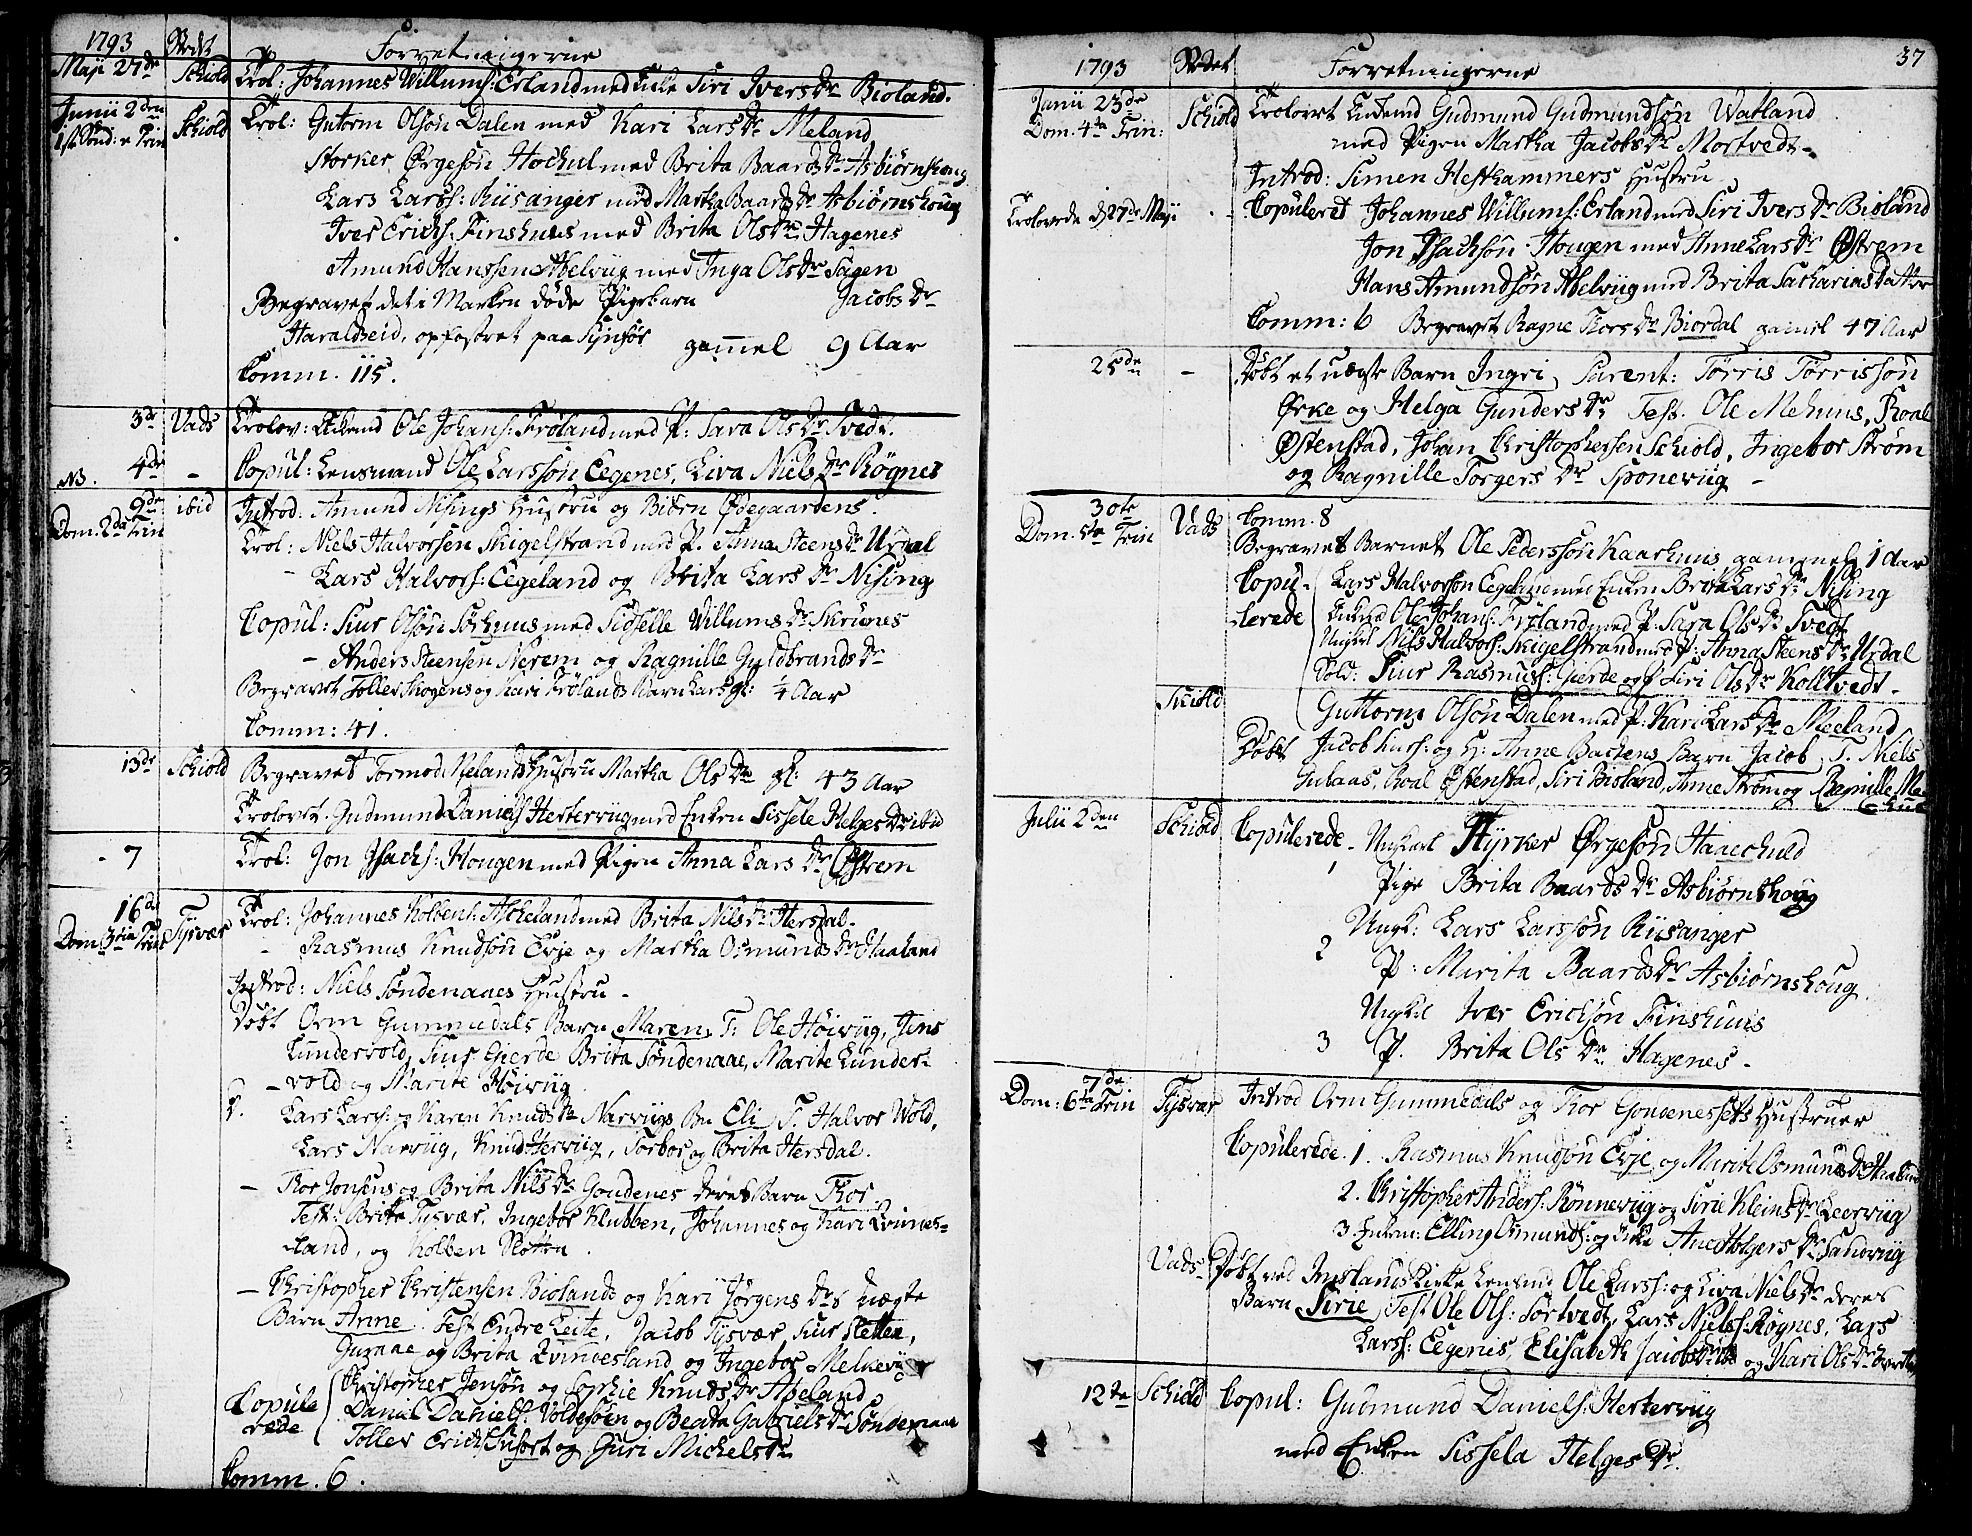 1793 Stedet Forretningerne
Maji 27de Schiold Trol: Johannes Willums: Erland med Enke Siri Ivers Dr Bioland.
Junii 2den Schiold Trol: Gutorm Olsøn Dalen med Kari Lars Dr Meland
1ste Sønd: e Trin
Storker Ørgesøn Hochul med Brita Baards Dr Asbiørnshoug
Lars Larss: Riisanger med Martha Baards Dr Asbiørnshoug
Iver Erichs: Finshuus med Brita Ols Dr Hagenes
Amund Hanssen Abelviig med Inga Ols Dr Sagen
Begravet det i Marken døde Pigebarn Jacobs Dr
Haraldseid, opfostret paa gammel 9 Aar
Comm. 115.
3de Vads Trolov: Enkemd Ole Johans: Frøland med P: Sara Ols Dr Tvedt.
NB. 4de - Copul: Lensmand Ole Larssøn Eegenes, Liva Niels Dr Røgnes
9de ibid Introd: Amund Nisings Hustru og Biørn Ødegaardens.
Dom. 2da Trin Trol: Niels Halvorsen Skigelstrand med P. Anna Steens Dr Urdal
- Lars Halvors: Eegeland og Brita Lars Dr Nising
Copul: Siur Olsøn Sørhuus med Sidselle Willums Dr Skrunes
- Anders Steensen Nerem og Ragnille Gyldbrands Dr
Begravet Tollev Skogens og Kari Frølands Barn Lars gl: 1/4 Aar
Comm: 41.
13de Schiold Begravet Tormod Melands Hustru Martha Ols Dr gl: 43 Aar
Trolovet. Gudmund Daniels Hertervuig med Enken Sissele Helges Dr ibid
- 7 Trol: Jon Isachs: Hougen med Pigen Anna Lars Dr Østrem
16de Tysvær Trol: Johannes Kolbens: Askeland med Brita Nils Dr Hersdal.
Dom 3tia Trin
- Rasmus Knudsøn Evje og Martha Osmunds Dr Haaland
Introd: Niels Søndenaaes Hustru -
Døbt Orm Gummedals Barn Maren T: Ole Høiviig, Jens
Lundervold, Siur Gierde Brita Søndenaae, Marite Lunder-
-vold og Marite Høiviig
D. Lars Lars: og Karen Knuds Dr Narviigs Bn Eli T. Halvor Wold,
Lars Narviig, Knud Herviig, Torbor og Brita Hersdal.
- Thor Jonsens og Brita Nils Dr Goudenes deres Barn Thor.
Test: Brita Tysvær, Ingebor Klubben, Johannes og Kari Qvines-
-land, og Kolben Slotten.
- Christopher Christensen Biolands og Kari Jørgens Drs uægte
Barn Anne. Test Endre Leite, Jacob Tysvær, Siur Sletten,
og Brita Qvindesland og Ingebor Melkeviig
Copule { Christopher Jensøn og Sophie Knuds Dr Apeland
rede Daniel Daniels: Voldesøen og Beata Gabriels Dr Søndenaae
Tollev Erichs: og Guri Michels Dr
Comm. 6.
37
1793 Stedet Forretningerne
Junii 23de Schiold Trolovet Enkemd Gudmund Gudmundsøn Watland
Dom. 4ta Trin: med Pigen Martha Jacobs Dr Mortvedt -
Introd: Simen Hesthammers Hustru
Trolovede d 27de Maji - Copuleret Johannes Willums: Erland med Siri Ivers Dr Bioland
Jon Isachsøn Hougen med Anne Lars Dr Østrem
Hans Amundsøn Abelviig med Brita Sacharias Datter
Comm: 6 Begravet Ragne Thors Dr Biordal gamel 47 Aar
25de - Døbt et uægte Barn Ingri, Parent: Tørris Tørrissøn
Ørke og Helga Gunders Dr Test. Ole Mehuus, Roal
Østenstad, Johan Christophersen Schiold, Ingebor Strøm
og Ragnille Torgers Dr Sponeviig -
30te Vads Comm. 8
Dom. 5ta Trin Begravet Barnet Ole Pederssøn Kaarhuus gammel 1 Aar
Copu- Lars Halvorsøn Eegeland med Enken Brita Lars Dr Nising
-lerede Enkemd Ole Johans: Frøland med P: Sara Ols Dr Tvedt
Ungkl Nils Halvors: Skigelstrand med P: Anna Steens Dr Urdal
Sold: Siur Rasmuss: Gierde og P Siri Ols Dr Kolltvedt -
Schiold Guttorm Olsøn Dalen med P: Kari Lars Dr Meeland
Døbt Jacob og H: Anne Backens Barn Jacob T. Niels
Gulaas, Roal Østenstad, Siri Bioland, Anne Strøm og Ragnille Me-
-huus
Julii 2den Schiold Copulerede - Ungkarl Styrker Ørgesøn Hanechuld
1 Pige Brita Baards Dr Asbiørnshoug
Ungk: Lars Larssøn Riisanger
2 P: Marita Baards Dr Asbiørnshoug.
Ungkl Iver Ericksøn Finshuus
3 P. Brita Ols Dr Hagenes -
7de Tysvær Introd Orm Gummedals og Thor Goudenes Hustruer
Dom: 6ta Trin
Copulerede. 1. Rasmus Knudsøn Evje og Marite Osmunds Dr Haaland
2. Christopher Anders: Rønneviig og Sirie Kleins Dr Leerviig
3. Enkem: Elling Osmunds: og Enke Ane Holgers Dr Sandviig
Vads Døbt ved Imslands Kirke Lensmd Ole Larss: og Liva Niels Dr deres
Barn Sirie Test Ole Ols: Sørtvedt, Lars Niels: Røgnes, Lars
Larss: Eegenes, Elisabeth Jacobs Dr og Kari Ols Dr
12te Schiold Copul: Gudmund Daniels: Hertervuig
med Enken Sissela Helges Dr.